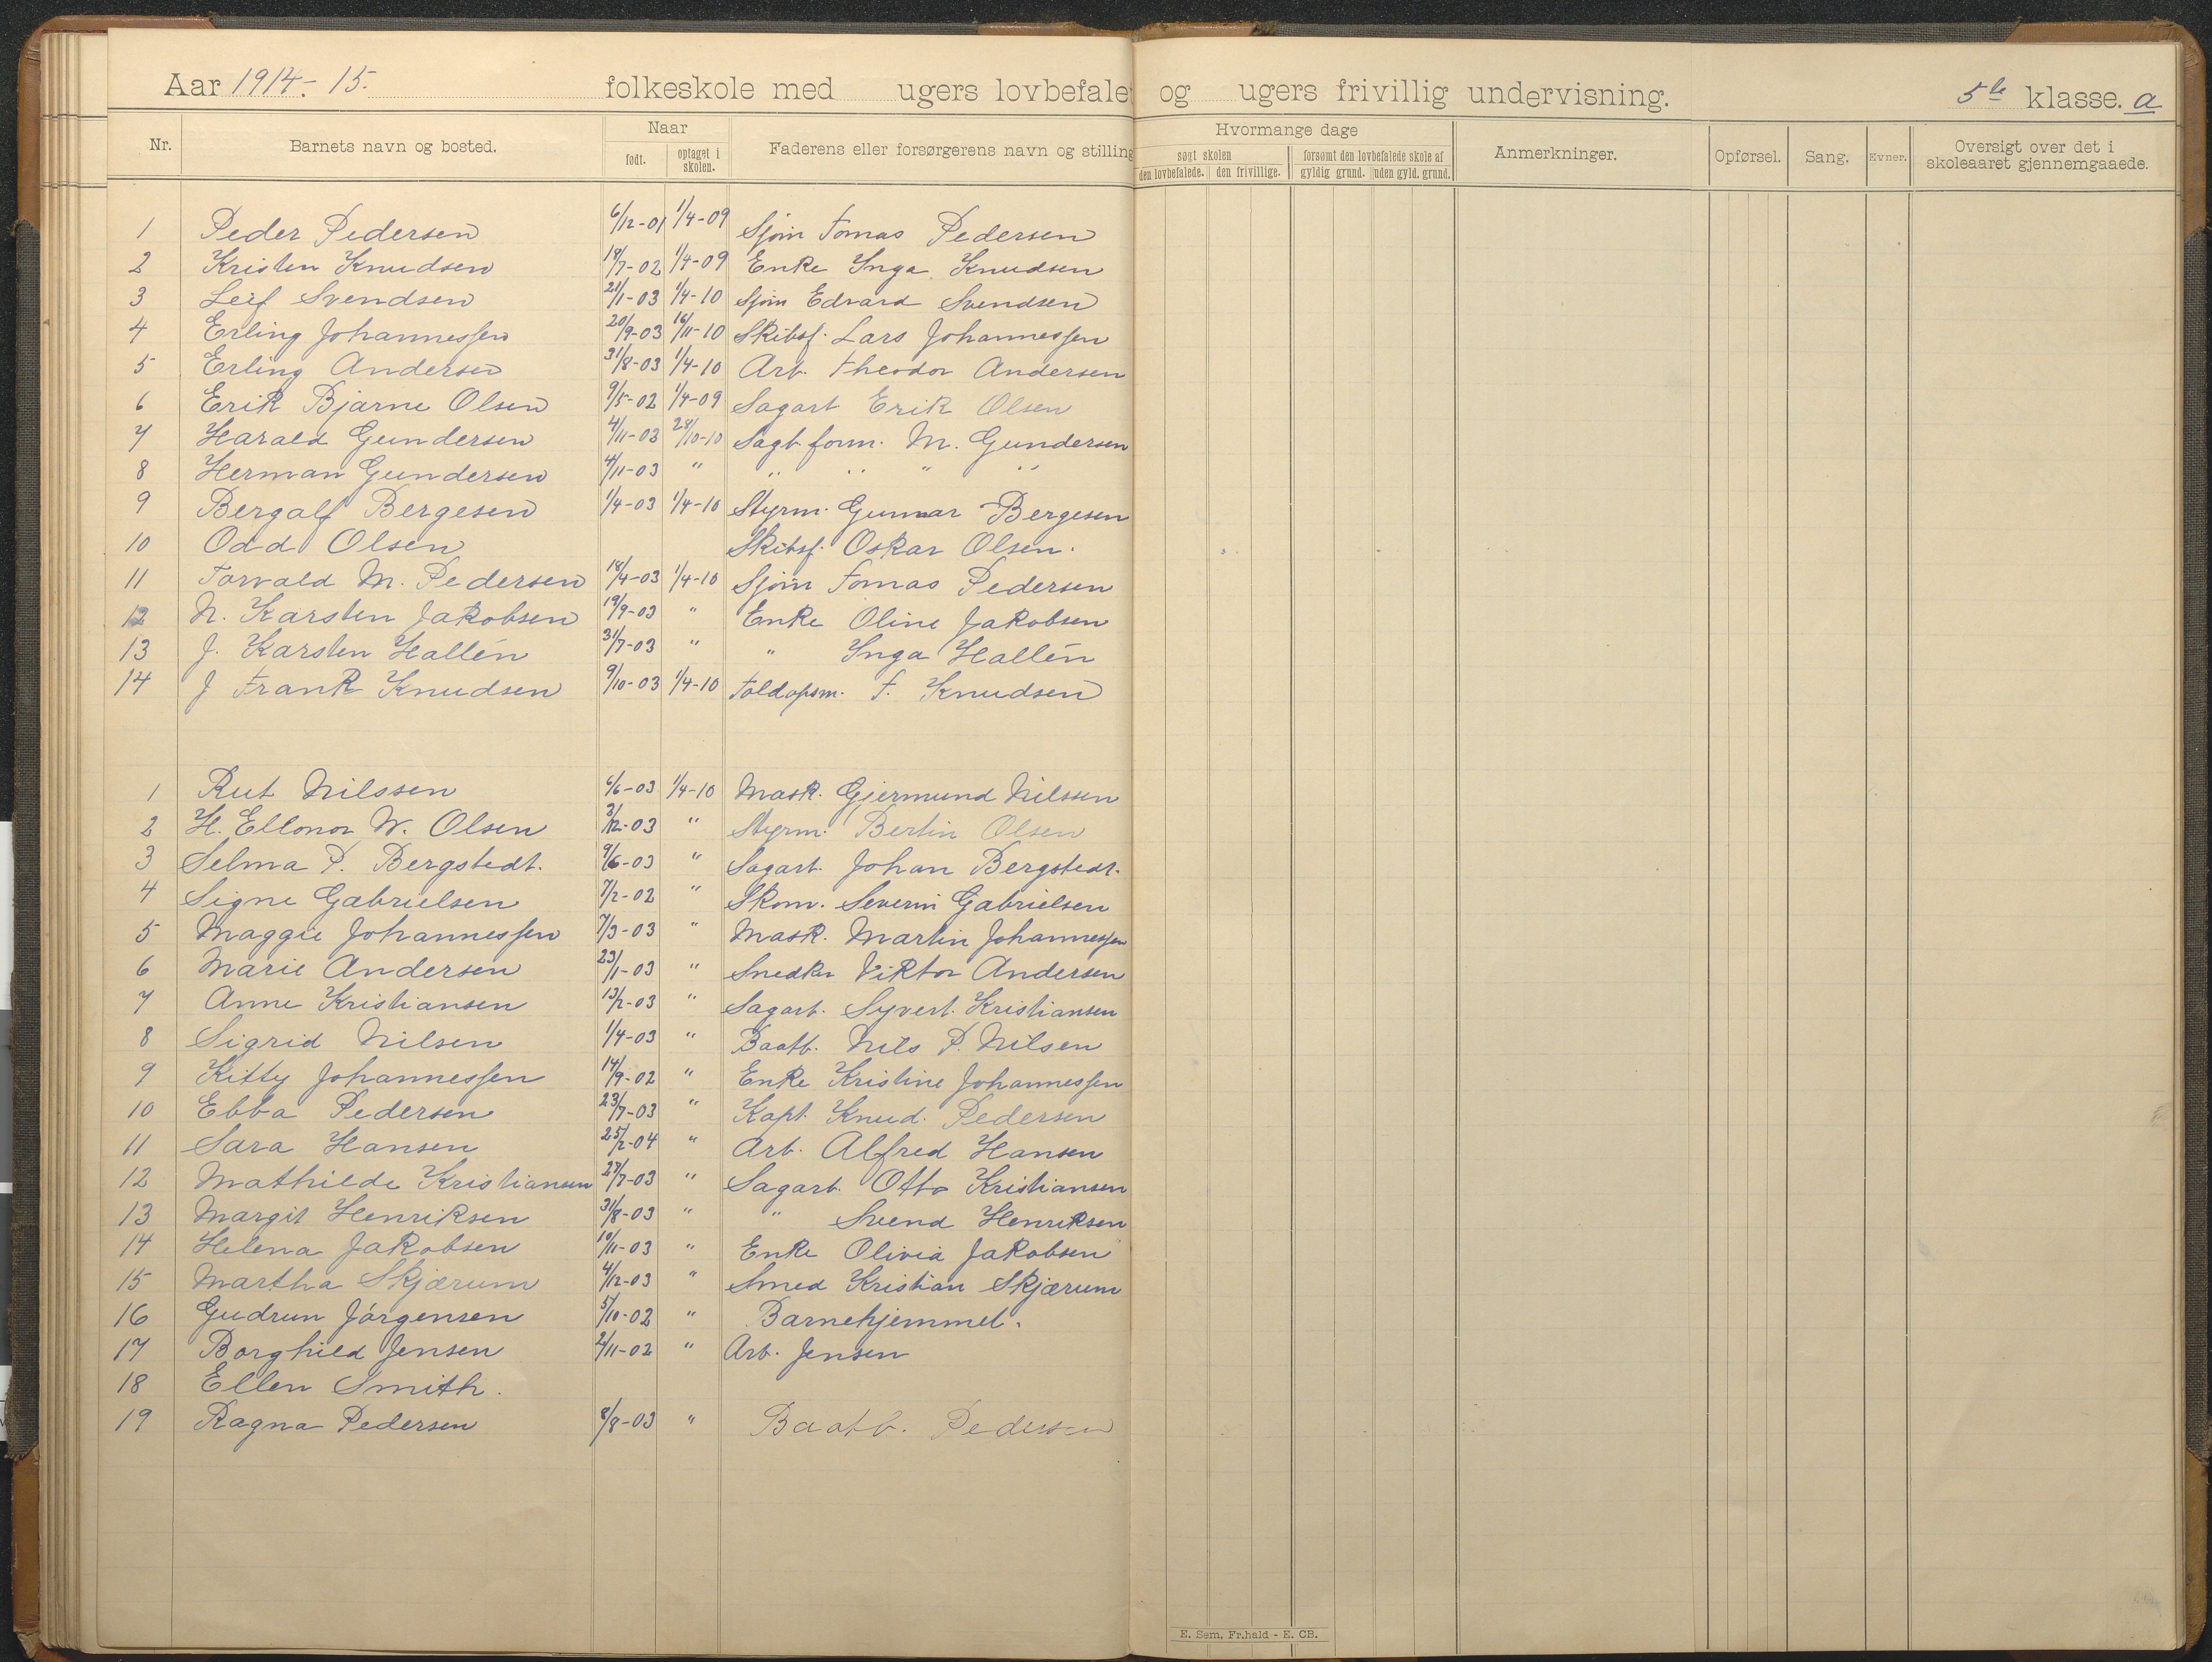 Aar 1914.-15. folkeskole med ugers lovbefale og ugers frivillig undervisning. 5te klasse. a
Nr. Barnets navn og bosted. Naar født. optaget i skolen. Faderens eller forsørgerens navn og stilling Hvormange dage søgt skolen den lovbefalede. den frivillige. forsømt den lovbefalede skole af gyldig grund. uden gyld. grund. Anmerkninger. Opførsel. Sang. Evner. Oversigt over det i skoleaaret gjennemgaaede.
1 Peder Pedersen 6/12-01 1/4-09 Sjøm Tomas Pedersen
2 Kristen Knudsen 18/7-02 1/4-09 Enke Inga Knudsen
3 Leif Svendsen 21/1-03 1/4-10 Sjøm Edvard Svendsen
4 Erling Johannessen 20/9-03 16/11-10 Skibsf. Lars Johannessen
5 Erling Andersen 31/8-03 1/4-10 Arb. Theodor Andersen
6 Erik Bjarne Olsen 9/5-02 1/4-09 Sagarb Erik Olsen
7 Harald Gundersen 4/11-03 28/10-10 Sagb.form. M. Gundersen
8 Herman Gundersen 4/11-03 " " " " "
9 Bergalf Bergesen 1/4-03 1/4-10 Styrm. Gunnar Bergesen
10 Odd Olsen Skibsf. Oskar Olsen.
11 Torvald M. Pedersen 18/4-03 1/4-10 Sjøm Tomas Pedersen
12 N. Karsten Jakobsen 19/9-03 " Enke Oline Jakobsen
13 J. Karsten Hallén 31/7-03 " " Inga Hallén
14 J Frank Knudsen 9/10-03 1/4-10 Toldopsm. F. Knudsen
1 Rut Nilssen 6/6-03 1/4-10 Mask. Gjermund Nilssen
2 H. Ellonor W. Olsen 3/12-03 " Styrm. Bertin Olsen
3 Selma P. Bergstedt. 9/6-03 " Sagarb. Johan Bergstedt.
4 Signe Gabrielsen 7/2-02 " Skom. Severin Gabrielsen
5 Maggie Johannessen 7/3-03 " Mask. Martin Johannessen
6 Marie Andersen 23/1-03 " Snedker Viktor Andersen
7 Anne Kristiansen 13/2-03 " Sagarb. Syvert. Kristiansen
8 Sigrid Nilsen 1/4-03 " Baatb. Nils P. Nilsen
9 Kitty Johannessen 14/9-02 " Enke Kristine Johannessen
10 Ebba Pedersen 23/7-03 " Kapt. Knud. Pedersen
11 Sara Hansen 25/2-04 " Arb. Alfred Hansen
12 Mathilde Kristiansen 27/7-03 " Sagarb. Otto Kristiansen
13 Margit Henriksen 31/8-03 " " Svend Henriksen
14 Helena Jakobsen 10/11-03 " Enke Olivia Jakobsen
15 Martha Skjærum 4/12-03 " Smed Kristian Skjærum
16 Gudrun Jörgensen 5/10-02 " Barnehjemmet.
17 Borghild Jensen 2/11-02 " Arb. Jensen
18 Ellen Smith.
19 Ragna Pedersen 8/8-03 " Baatb. Pedersen
E. Sem, Fr.hald - E. CB.